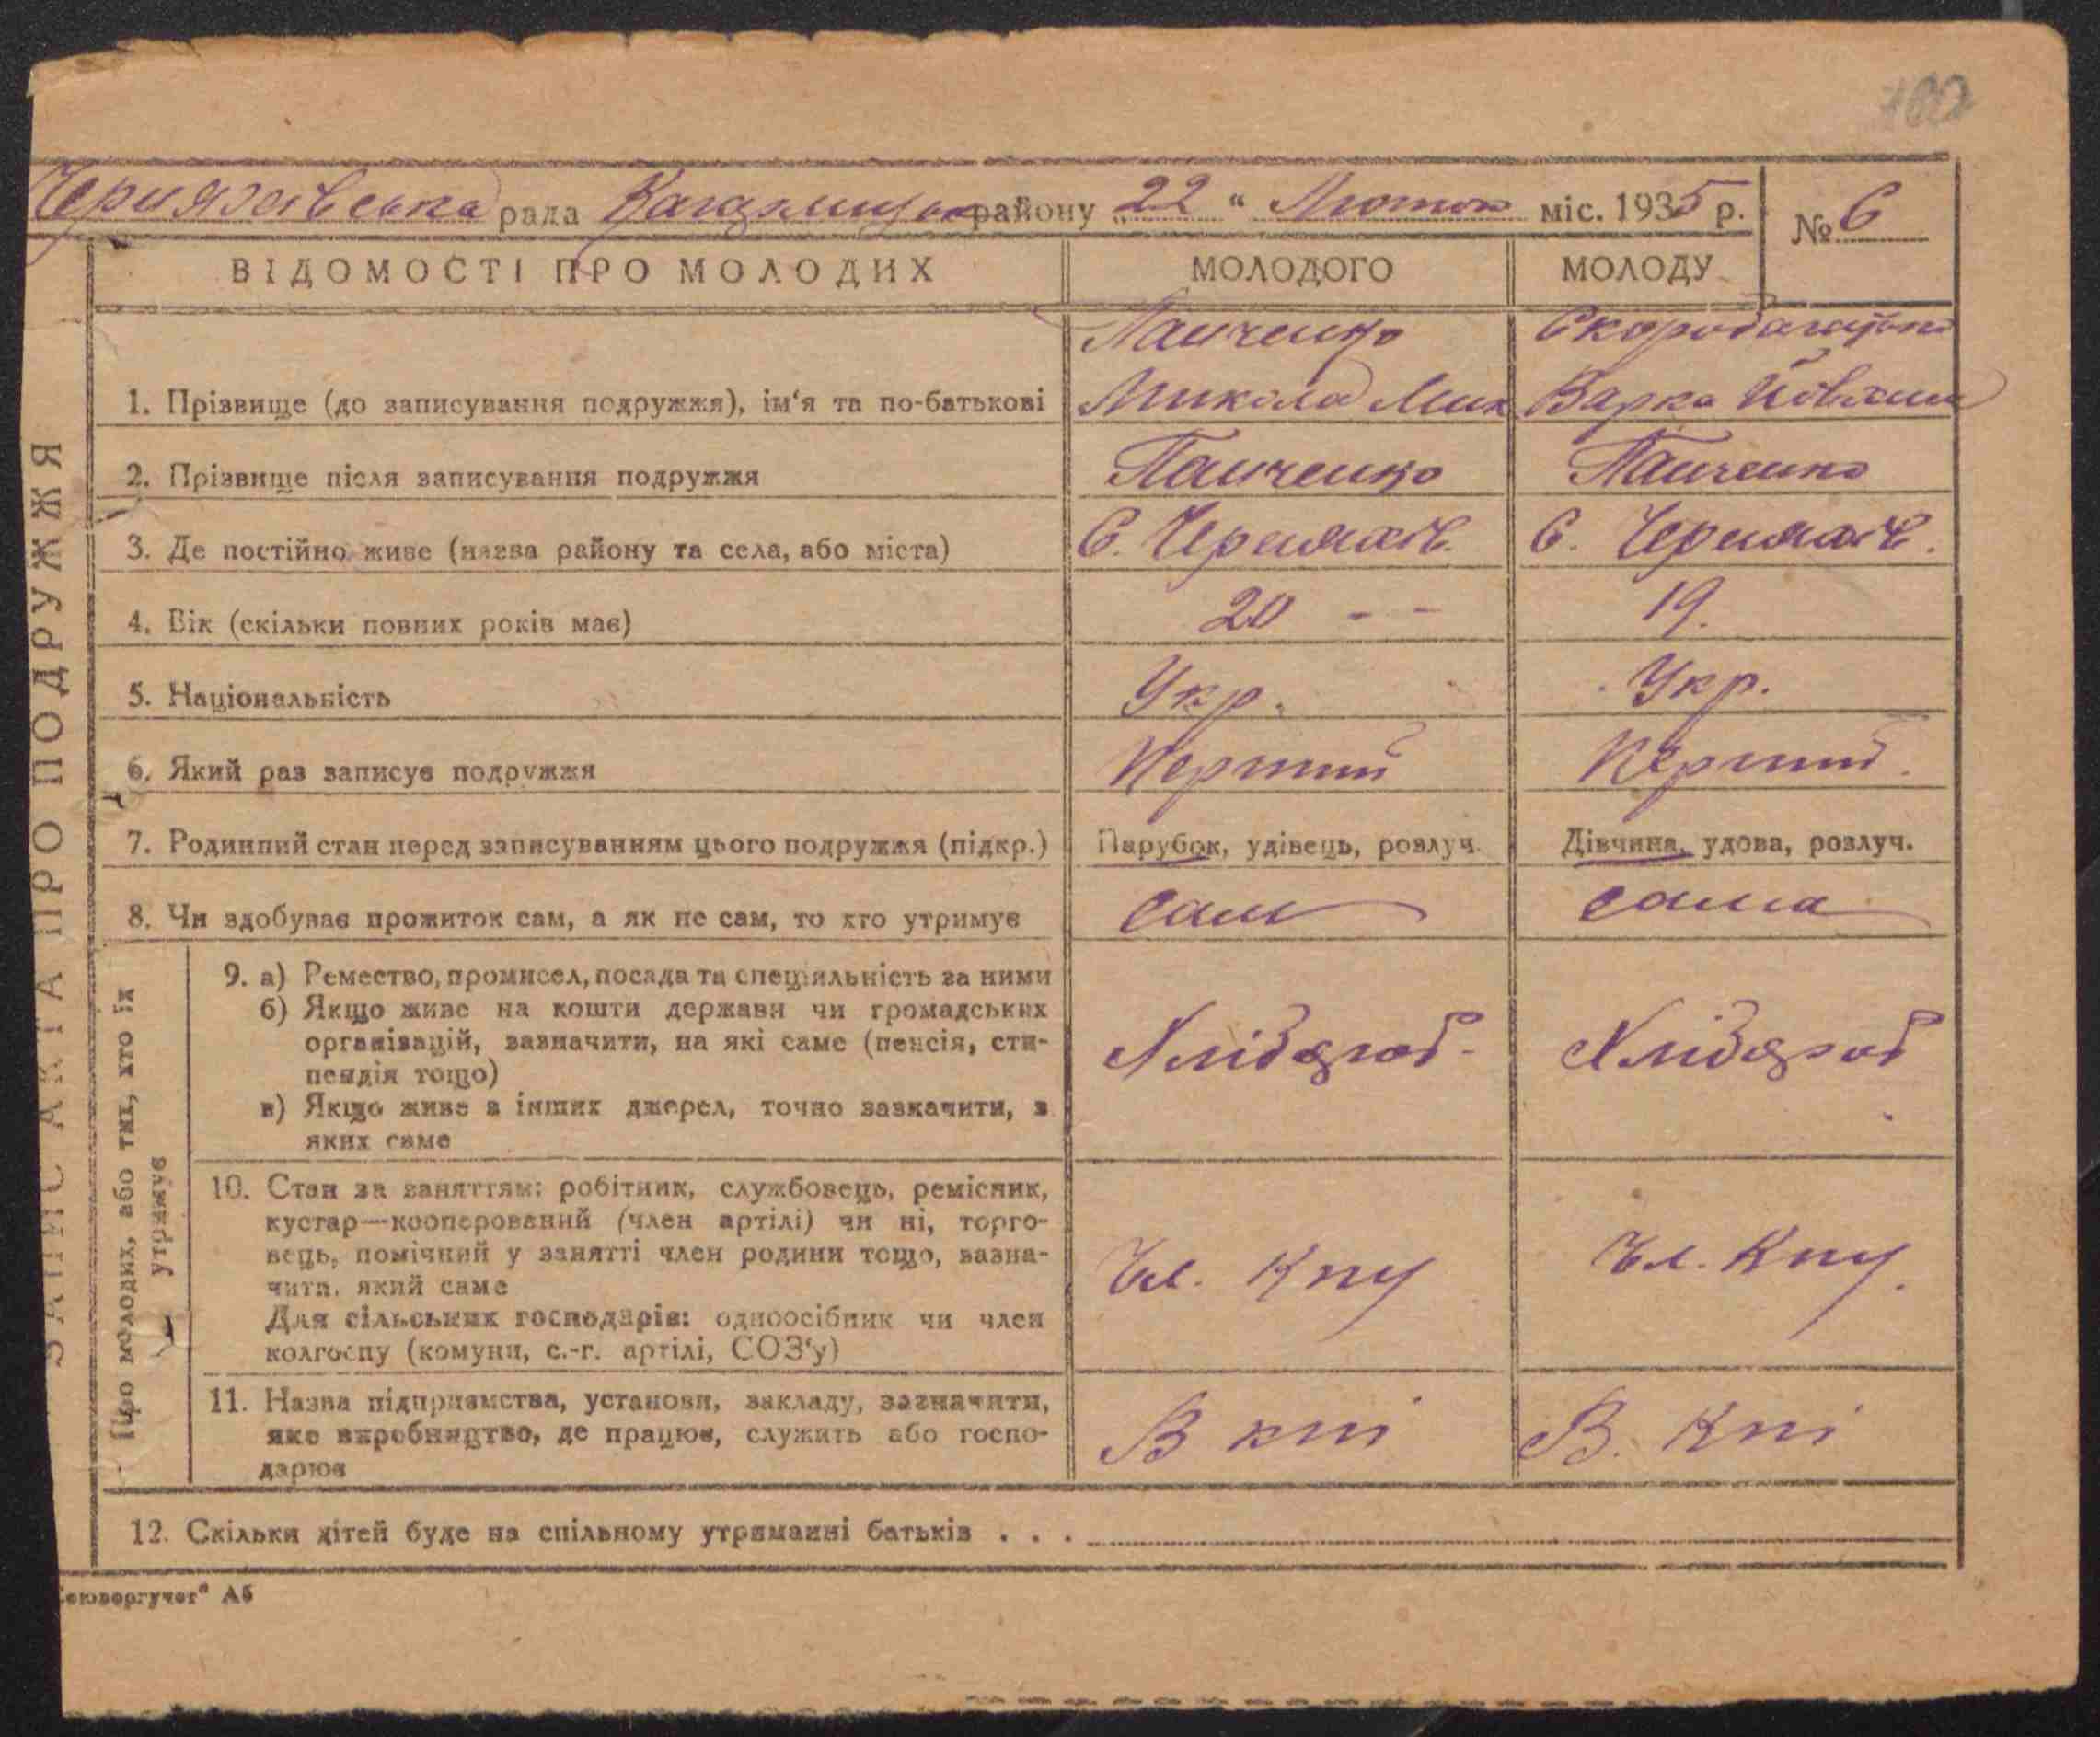 рада району „22“ Лютого міс. 1935 р. № 6
ВІДОМОСТІ ПРО МОЛОДИХ МОЛОДОГО МОЛОДУ
Панченко
1. Прізвище (до записування подружжя), ім'я та по-батькові Микола Мик Варка
2. Прізвище після записування подружжя Панченко Панченко
3. Де постійно живе (назва району та села, або міста) С. Черняхів. С. Черняхів.
4. Вік (скільки повних років має) 20 - - 19.
5. Національність Укр. Укр.
6. Який раз записує подружжя Перший Перший.
7. Родинний стан перед записуванням цього подружжя (підкр.) Парубок, удівець, розлуч. Дівчина, удова, розлуч.
8. Чи здобуває прожиток сам, а як не сам, то хто утримує сам сама
9. а) Ремество, промисел, посада та спеціяльність за ними
б) Якщо живе на кошти держави чи громадських
організацій, зазначити, на які саме (пенсія, сти-
пендія тощо)
в) Якщо живе з інших джерел, точно зазначити, з
яких саме
Хлібороб Хлібороб
10. Стан за заняттям: робітник, службовець, ремісник,
кустар—кооперований (член артілі) чи ні, торго-
вець, помічний у занятті член родини тощо, зазна-
чити, який саме
Для сільських господарів: одноосібник чи член
колгоспу (комуни, с.-г. артілі, СОЗ'у)
Чл. Кпу Чл. Кпу.
11. Назва підприємства, установи, закладу, зазначити,
яке виробництво, де працює, служить або госпо-
дарює
В кпі В. Кпі
12. Скільки дітей буде на спільному утриманні батьків . . .
ЗАПИС АКТА ПРО ПОДРУЖЖЯ
Про молодих, або тих, хто їх
утримує
" А5